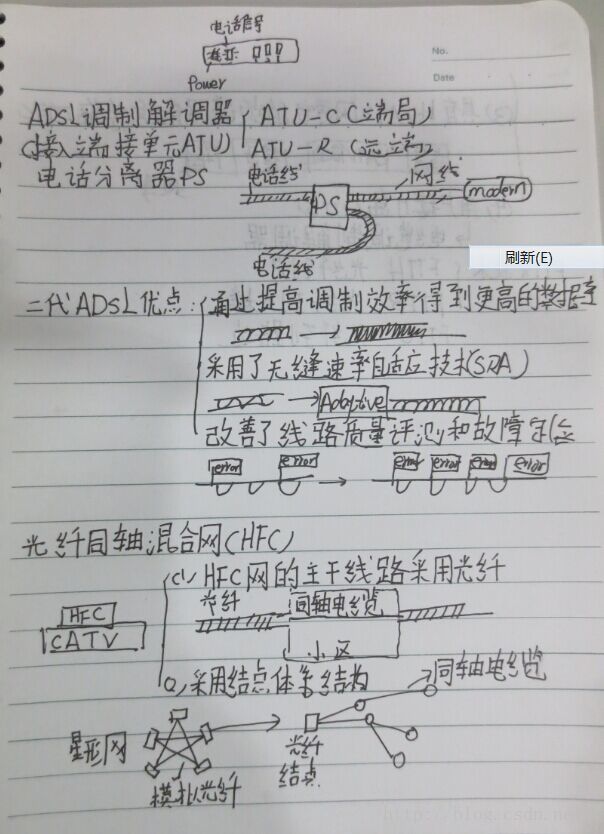 电话信号
No.
Date
Power
ADSL调制解调器
(接入端接单元ATU)
ATU-C(端局)
ATU-R(远端)
电话分离器PS
电话线
网线
PS
modern
电话线
刷新(E)
二代ADSL优点:
通过提高调制效率得到更高的数据率
采用了无缝速率自适应技术(SRA)
Adaptive
改善了线路质量评测和故障定位
error error error error error error
光纤同轴混合网(HFC)
(1) HFC网的主干线路采用光纤
HFC
CATV
光纤
同轴电缆
小区
采用结点体系结构
同轴电缆
星形网
模拟光纤
光纤
结点
http://blog.csdn.net/